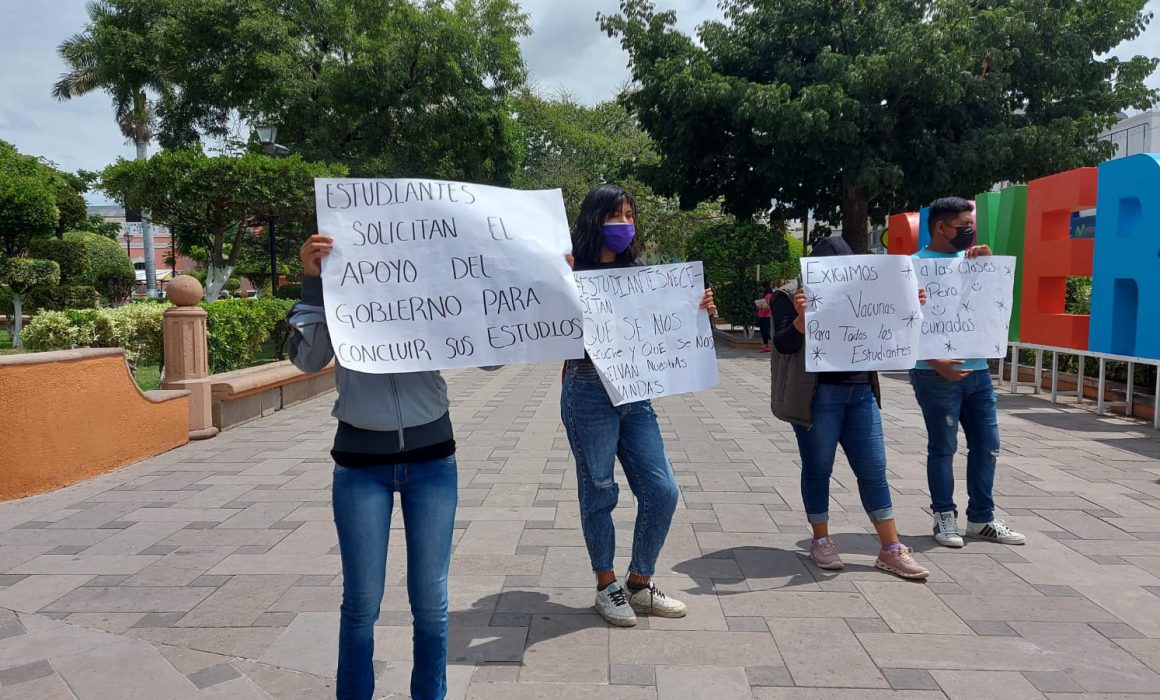 ESTUDIANTES
SOLICITAN EL
APOYO DEL
GOBIERNO PARA
CONCLUIR SUS ESTUDIOS
ESTUDIANTES NECE
SITAN
QUE SE NOS
Escuche Y QUE SE NOS
NUESTRAS
ANDAS.
EXIGIMOS
Vacunas
Para Todos los
Estudiantes
a las Clases
Pero
cunados
ERB
movistar